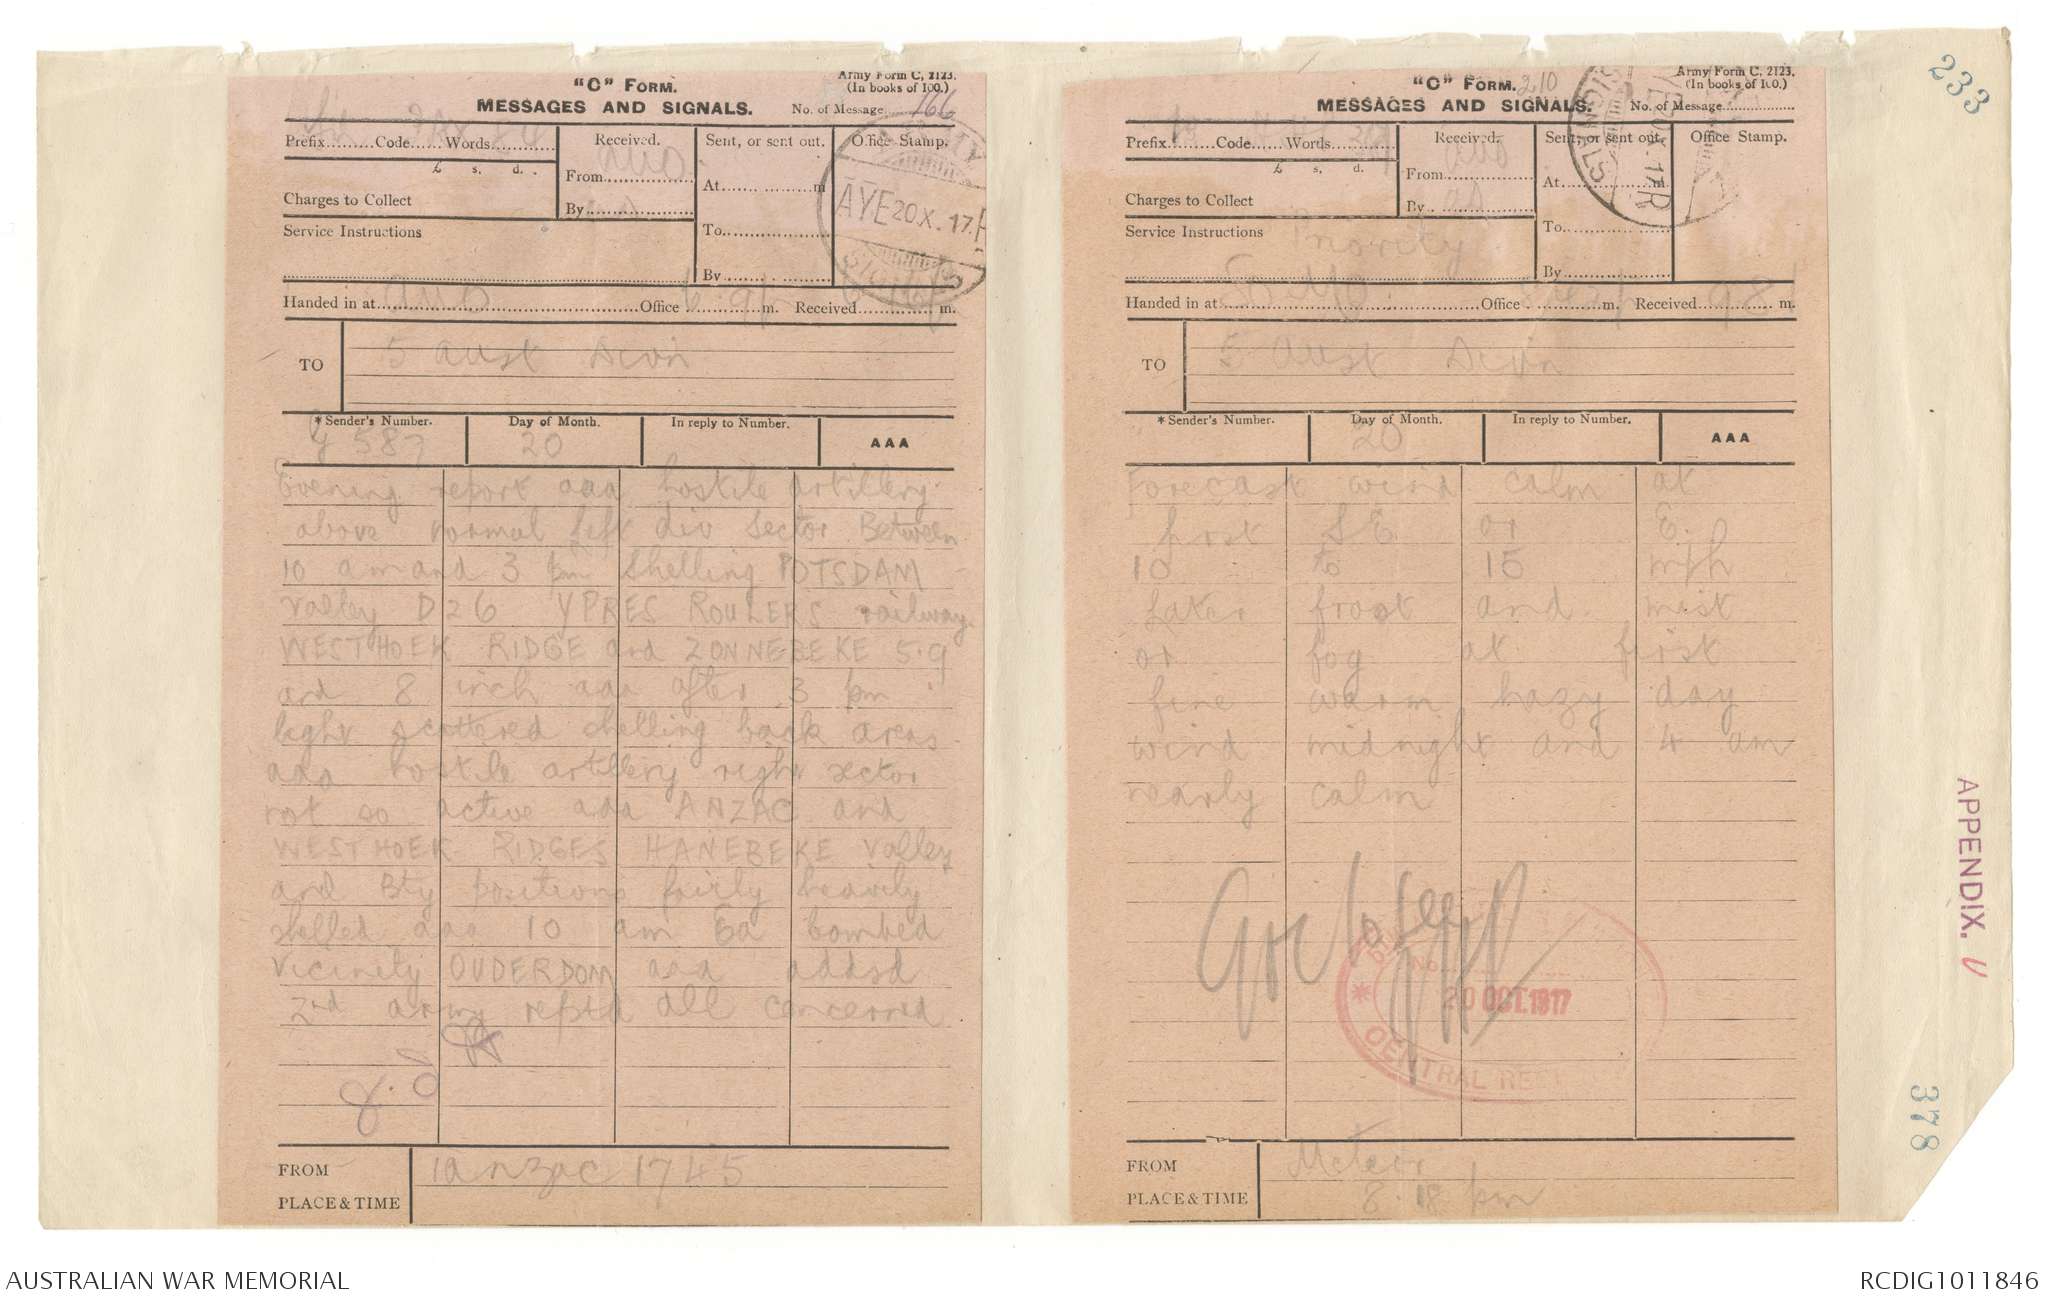 233
"C" FORM.
Army Form C. 2123.
(In books of 100.)
MESSAGES AND SIGNALS.
No. of Message 166
Prefix Code Words
Received.
Sent, or sent out.
Office Stamp.
£ s. d.
From
At m
Charges to Collect
By
AYE 20.X.17.
SIGNALS
Service Instructions
To
By
Handed in at Office m. Received m.
TO
5 Aust Divn
*Sender's Number.
Day of Month.
In reply to Number.
AAA
G 587
20
Evening report aaa hostile artillery
above normal left div sector Between
10 am and 3 pm shelling POTSDAM
valley D26 YPRES ROULERS railway
WESTHOEK RIDGE and ZONNEBEKE 5.9
and 8 inch aaa after 3 pm
light scattered shelling back areas
aaa hostile artillery right sector
not so active aaa ANZAC and
WESTHOEK RIDGES HANEBEKE valley
and Bty positions fairly heavily
shelled aaa 10 am Ea bombed
vicinity OUDERDOM aaa addsd
2nd army reptd all concerned
FROM
PLACE & TIME
1 anzac 1745
"C" FORM.
Army Form C. 2123.
(In books of 100.)
MESSAGES AND SIGNALS.
No. of Message
210
Prefix Code Words
Received.
Sent, or sent out.
Office Stamp.
£ s. d.
From
At m
Charges to Collect
By
SIGNALS
Service Instructions
Priority
To
By
Handed in at Office m. Received m.
TO
5 Aust Divn
*Sender's Number.
Day of Month.
In reply to Number.
AAA
20
Forecast wind calm at
first SE or E.
10 to 15 mph
later frost and mist
or fog at first
fine warm hazy day
wind midnight and 4 am
nearly calm
20 OCT. 1917
CENTRAL
FROM
PLACE & TIME
Meteor
8.18 pm
APPENDIX. V
378
AUSTRALIAN WAR MEMORIAL
RCDIG1011846